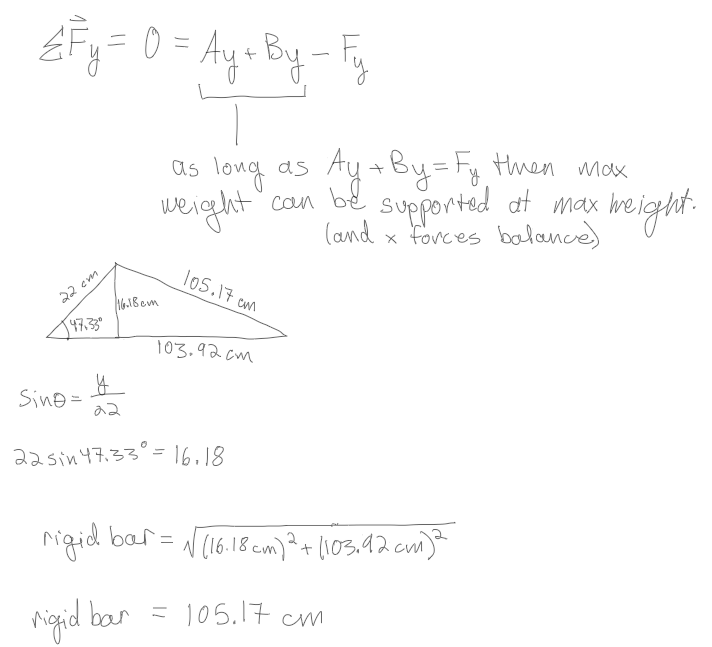 ΣF⃗y = 0 = Ay + By - Fy
as long as Ay + By = Fy then max
weight can be supported at max height.
(and x forces balance)
22 cm
105.17 cm
16.18 cm
47.33°
103.92 cm
Sinθ = y/22
22 sin 47.33° = 16.18
rigid bar = √(16.18 cm)² + (103.92 cm)²
rigid bar = 105.17 cm